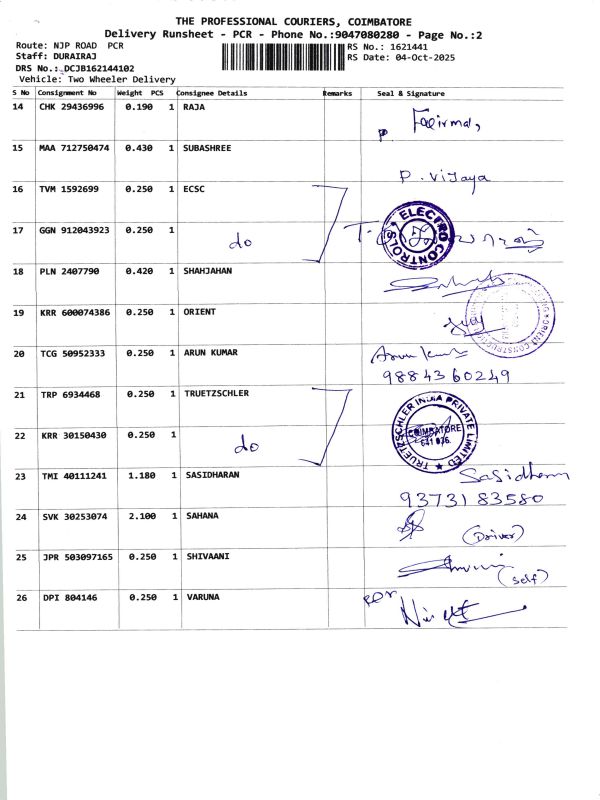 THE PROFESSIONAL COURIERS, COIMBATORE
Delivery Runsheet - PCR - Phone No.:9047080280 - Page No.:2
Route: NJP ROAD PCR
RS No.: 1621441
Staff: DURAIRAJ
RS Date: 04-Oct-2025
DRS No.: DCJB162144102
Vehicle: Two Wheeler Delivery
S No Consignment No Weight PCS Consignee Details Remarks Seal & Signature
14 CHK 29436996 0.190 1 RAJA
15 MAA 712750474 0.430 1 SUBASHREE
P. Vijaya
16 TVM 1592699 0.250 1 ECSC
ELECTRO CONTROLS
17 GGN 912043923 0.250 1 do
18 PLN 2407790 0.420 1 SHAHJAHAN
19 KRR 600074386 0.250 1 ORIENT
ORIENT CONSTRUCTION
20 TCG 50952333 0.250 1 ARUN KUMAR Arun kumar
9884360249
21 TRP 6934468 0.250 1 TRUETZSCHLER
TRUETZSCHLER INDIA PRIVATE LIMITED
COIMBATORE
641 036.
22 KRR 30150430 0.250 1 do
23 TMI 40111241 1.180 1 SASIDHARAN Sasidharan
9373183580
24 SVK 30253074 2.100 1 SAHANA
(Driver)
25 JPR 503097165 0.250 1 SHIVAANI
(self)
26 DPI 804146 0.250 1 VARUNA